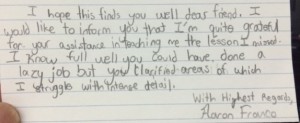 I hope this finds you well dear friend. I
would like to inform you that I'm quite grateful
for your assistance in teaching me the lesson I missed.
I know full well you could, have done a
lazy job but you clarified areas of which
I struggle with intense detail.
With Highest Regards,
Aaron Franco